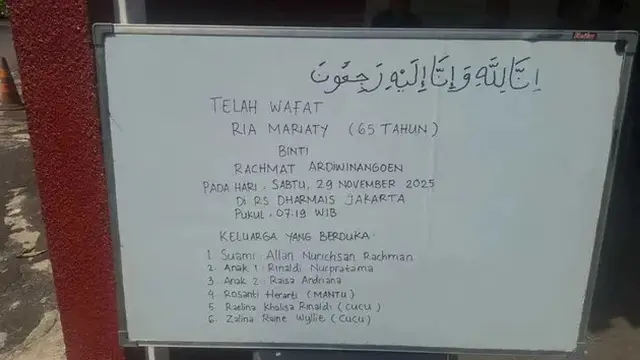 إِنَّا لِلَّهِ وَإِنَّا إِلَيْهِ رَجِعُوْنَ
TELAH WAFAT
RIA MARIATY (65 TAHUN)
BINTI
RACHMAT ARDIWINANGOEN
PADA HARI . SABTU, 29 NOVEMBER 2025
DI RS DHARMAIS JAKARTA
PUKUL . 07.19 WIB
KELUARGA YANG BERDUKA.
1. Suami : Allan Nurichsan Rachman
2. Anak 1 : Rinaldi Nurpratama
3. Anak 2 : Raisa Andriana
4. Rosanti Herarti (MANTU)
5. Raelina Khalisa Rinaldi (CUCU)
6. Zalina Raine Wyllie (CUCU)